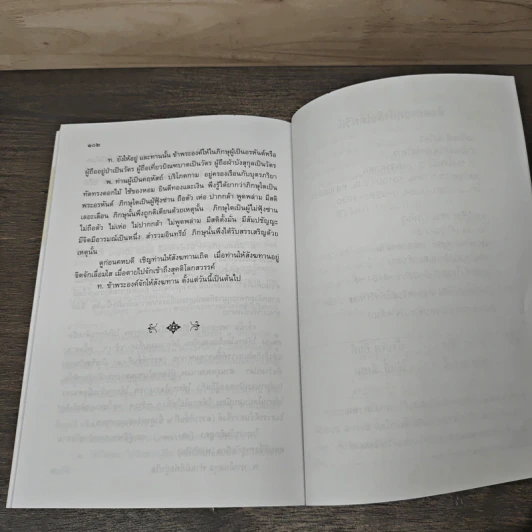 ๑๐๒
ท. ยังให้อยู่ และทานนั้น ข้าพระองค์ให้ในภิกษุผู้เป็นอรหันต์หรือ
ผู้ถืออยู่ป่าเป็นวัตร ผู้ถือเที่ยวบิณฑบาตเป็นวัตร ผู้ถือผ้าบังสุกุลเป็นวัตร
พ. ท่านผู้เป็นคฤหัสถ์ บริโภคกาม อยู่ครองเรือนกับบุตรภริยา
ทัดทรงดอกไม้ ใช้ของหอม ยินดีทองและเงิน พึงรู้ได้ยากว่าภิกษุใดเป็น
พระอรหันต์ ภิกษุใดเป็นผู้ฟุ้งซ่าน ถือตัว เห่อ ปากกล้า พูดพล่าม มีสติ
เลอะเลือน ภิกษุนั้นพึงถูกติเตียนด้วยเหตุนั้น ภิกษุใดเป็นผู้ไม่ฟุ้งซ่าน
ไม่ถือตัว ไม่เห่อ ไม่ปากกล้า ไม่พูดพล่าม มีสติตั้งมั่น มีสัมปชัญญะ
มีจิตมีอารมณ์เป็นหนึ่ง สำรวมอินทรีย์ ภิกษุนั้นพึงได้รับสรรเสริญด้วย
เหตุนั้น
ดูก่อนคหบดี เชิญท่านให้สังฆทานเถิด เมื่อท่านให้สังฆทานอยู่
จิตจักเลื่อมใส เมื่อตายไปจักเข้าถึงสุคติโลกสวรรค์
ท. ข้าพระองค์จักให้สังฆทาน ตั้งแต่วันนี้เป็นต้นไป